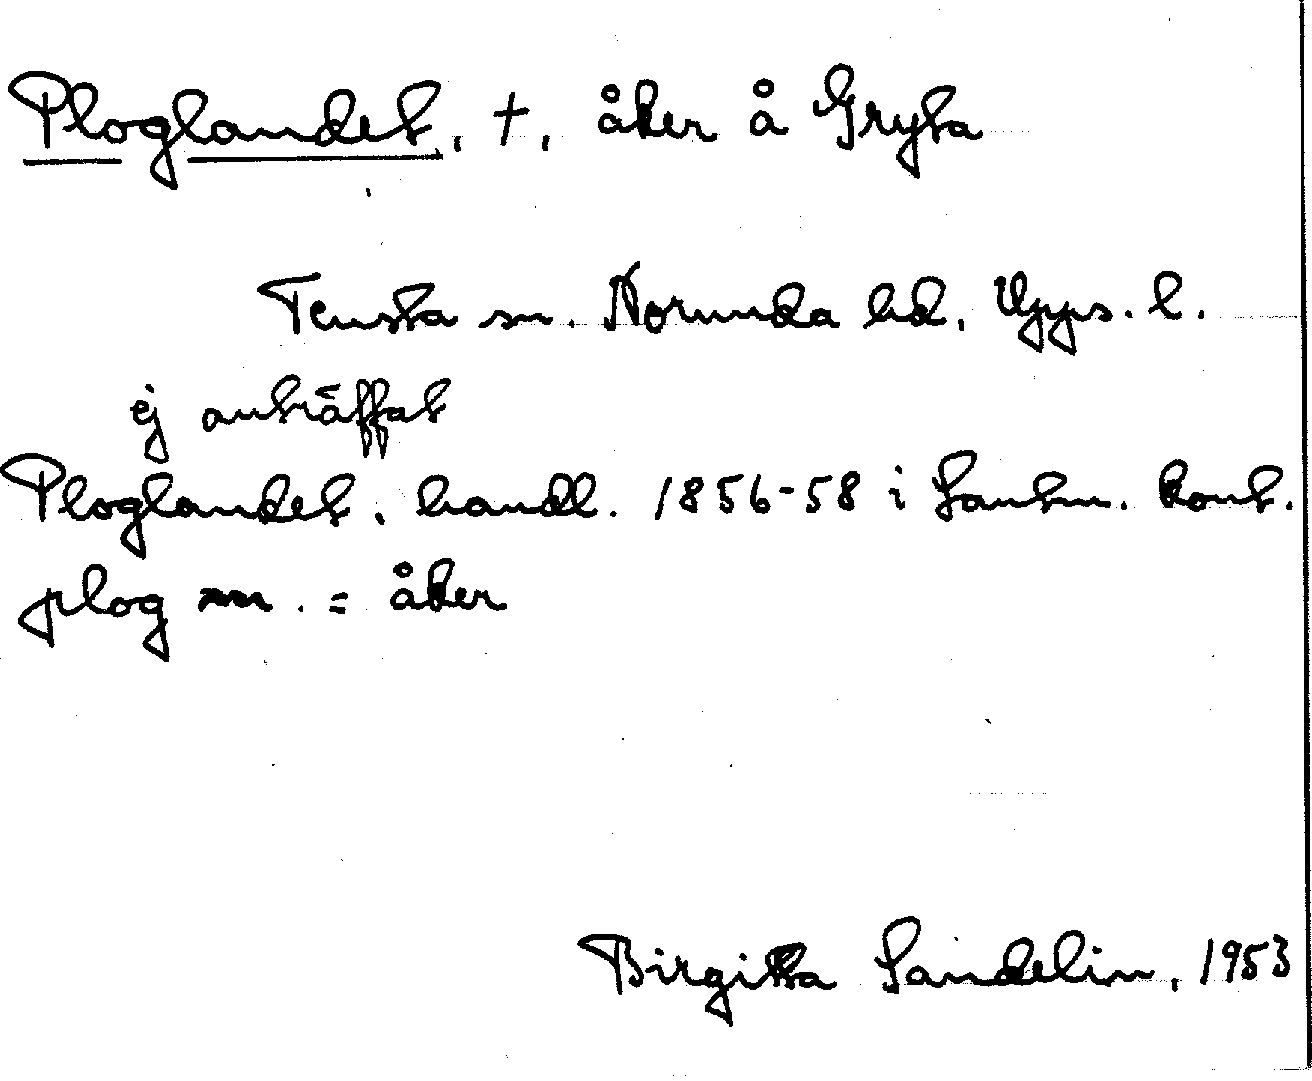 Ploglandet, †, åker å Gryta
Tensta sn. Norunda hd, Upps. l.
ej anträffat
Ploglandet, handl. 1856-58 i Lantm. kont.
plog m. = åker
Birgitta Sandelin, 1953